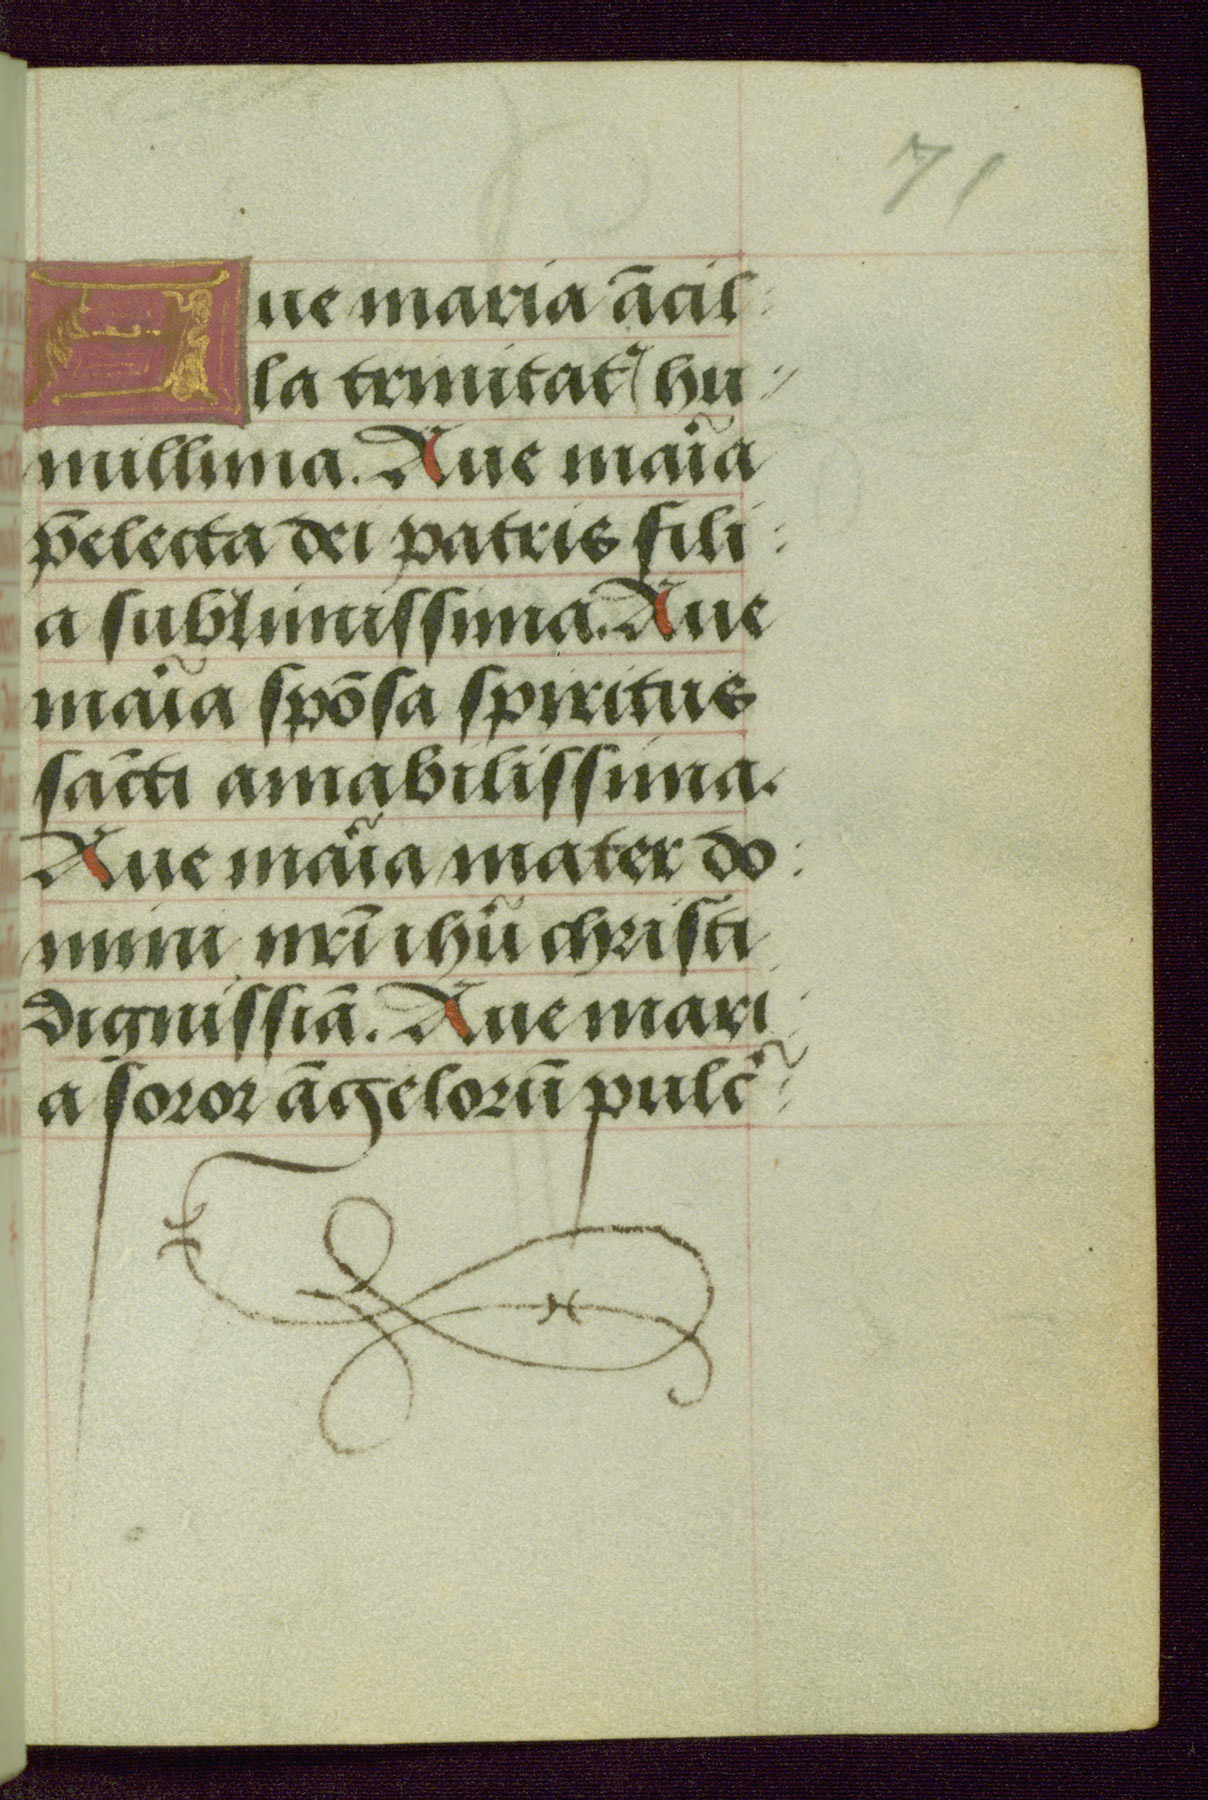 71
Aue maria ācil
la trinitat⁹ hu
millima. Aue mar̃ia
p̄electa dei patris fili
a sublimissima. Aue
mar̃ia spōsa spiritus
sācti amabilissima.
Aue mar̃ia mater do
mini nr̄i ihũ christi
dignissiā. Aue mari
a soror āgelorū pulc̃